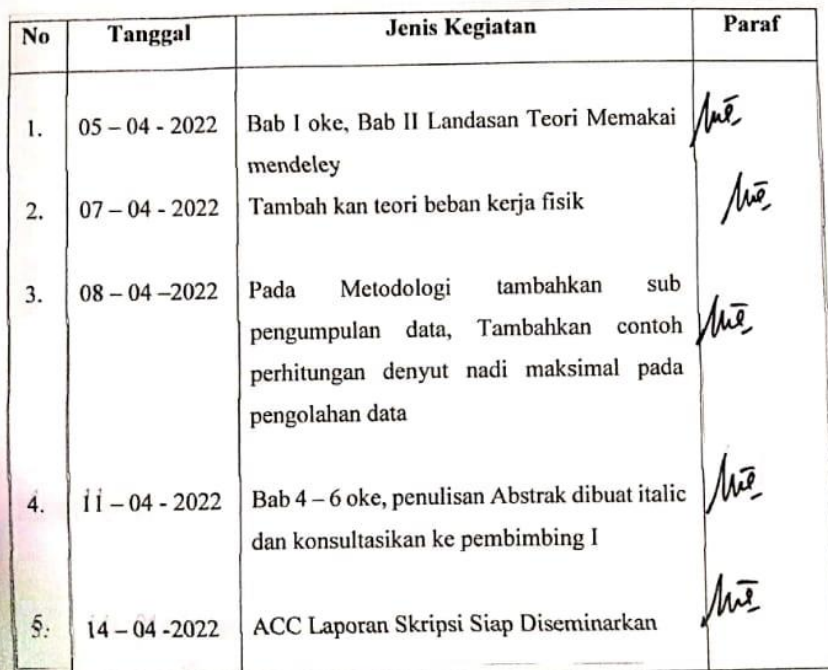 No Tanggal Jenis Kegiatan Paraf
1. 05 – 04 - 2022 Bab I oke, Bab II Landasan Teori Memakai
mendeley
2. 07 – 04 - 2022 Tambah kan teori beban kerja fisik
3. 08 – 04 –2022 Pada Metodologi tambahkan sub
pengumpulan data, Tambahkan contoh
perhitungan denyut nadi maksimal pada
pengolahan data
4. 11 – 04 - 2022 Bab 4 – 6 oke, penulisan Abstrak dibuat italic
dan konsultasikan ke pembimbing I
5. 14 – 04 -2022 ACC Laporan Skripsi Siap Diseminarkan